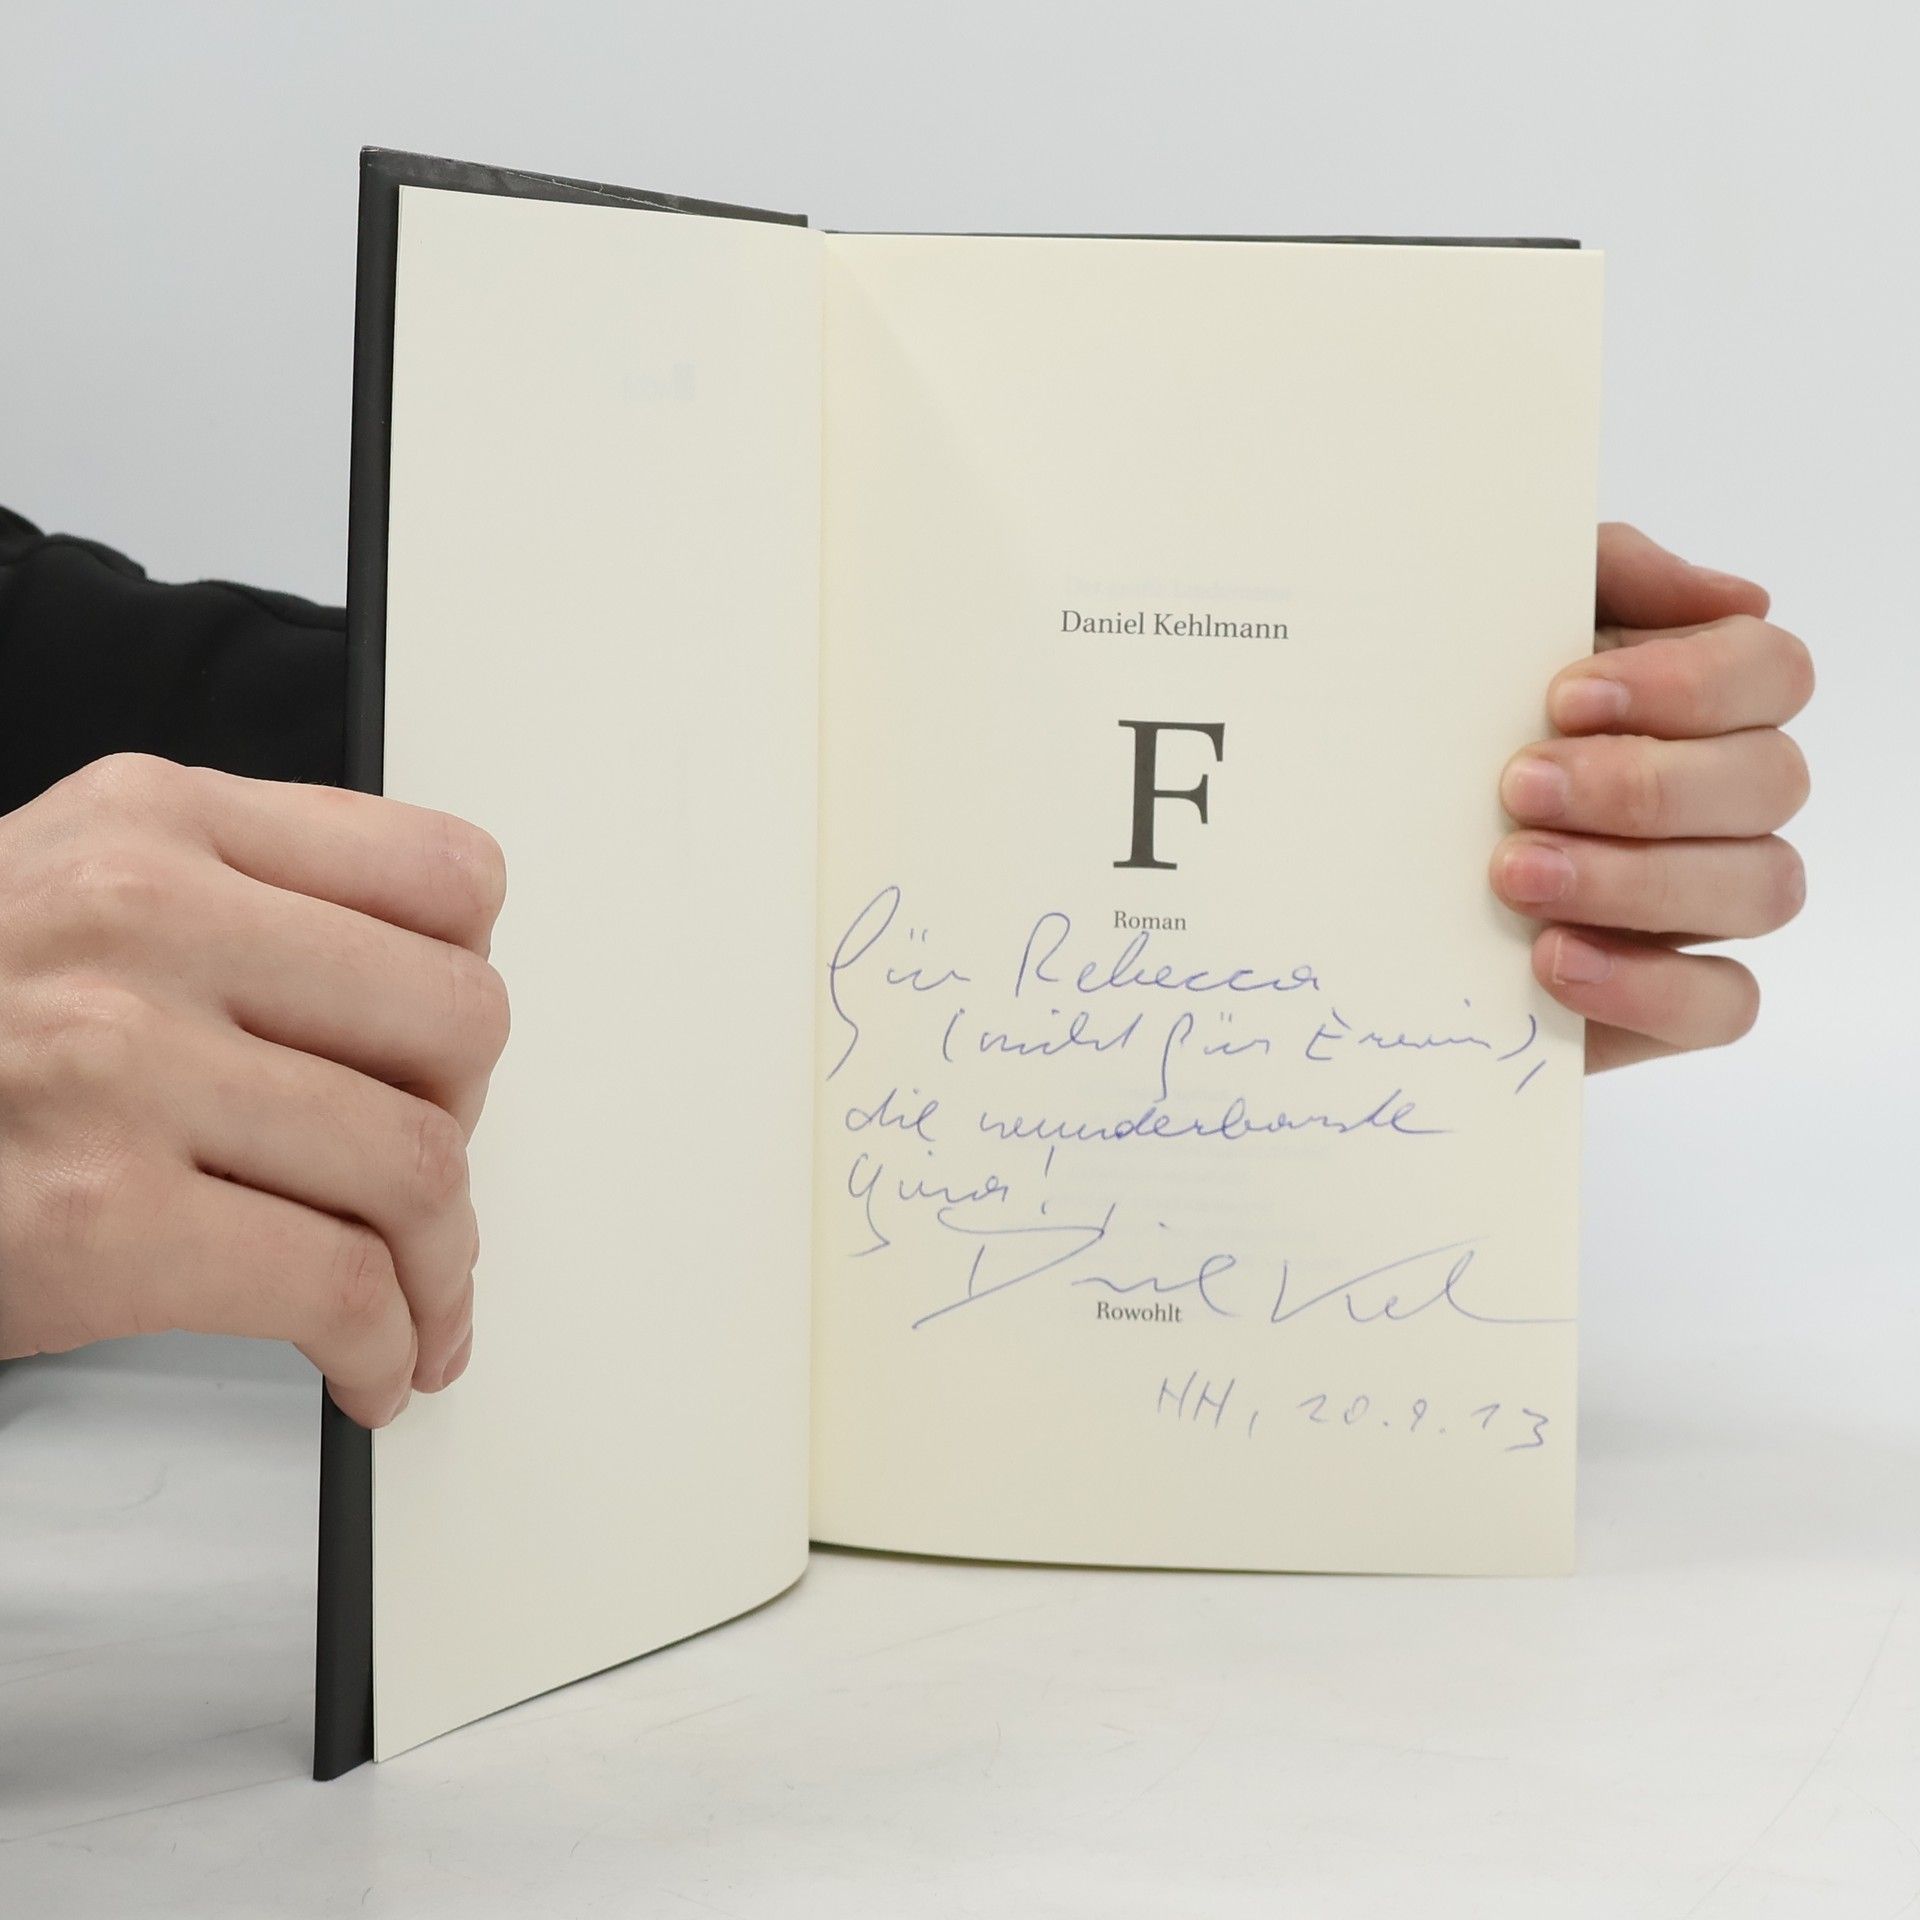 Daniel Kehlmann
F
Roman
Für Rebecca
(nicht für Erwin),
die wunderbarste
Gina!
Daniel Kehl
Rowohlt
HH, 20.9.13